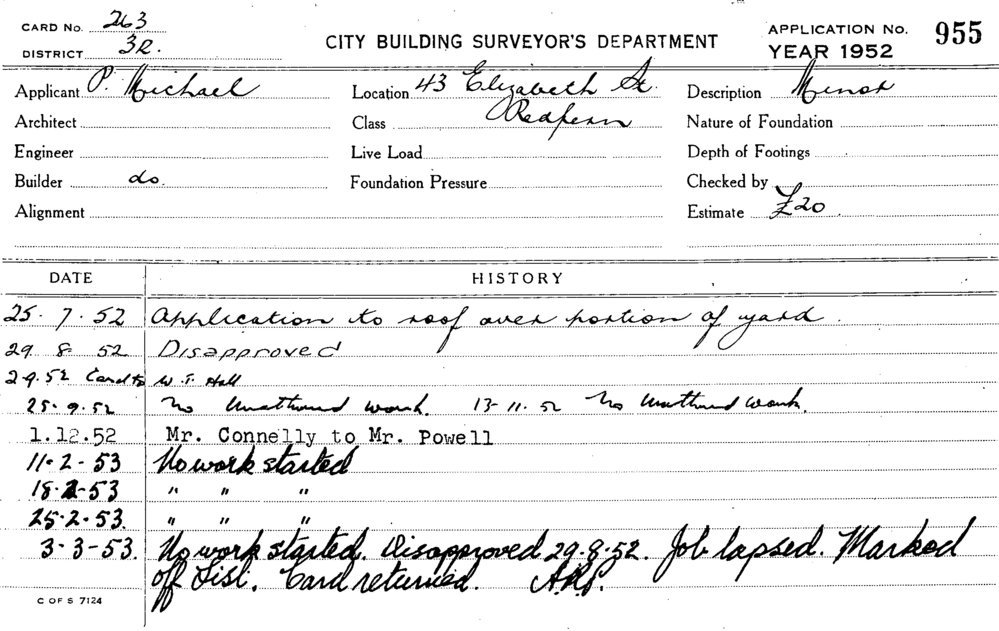 CARD No. 263
DISTRICT 3R.
CITY BUILDING SURVEYOR'S DEPARTMENT
APPLICATION No. 955
YEAR 1952
Applicant P. Michael
Location 43 Elizabeth St.
Redfern
Description Minor
Architect
Class
Nature of Foundation
Engineer
Live Load
Depth of Footings
Builder do.
Foundation Pressure
Checked by
Alignment
Estimate £20
DATE HISTORY
25. 7. 52 Application to roof over portion of yard.
29 8 52 Disapproved
2.9.52 Card to W. T. Hall
25.9.52 No Unauthorised work. 13-11-52 No Unauthorised work.
1.12.52 Mr. Connelly to Mr. Powell
11-2-53 No work started
18-2-53 " " "
25-2-53. " " "
3-3-53. No work started. Disapproved 29.8.52. Job lapsed. Marked
off List. Card returned.
C OF S 7124